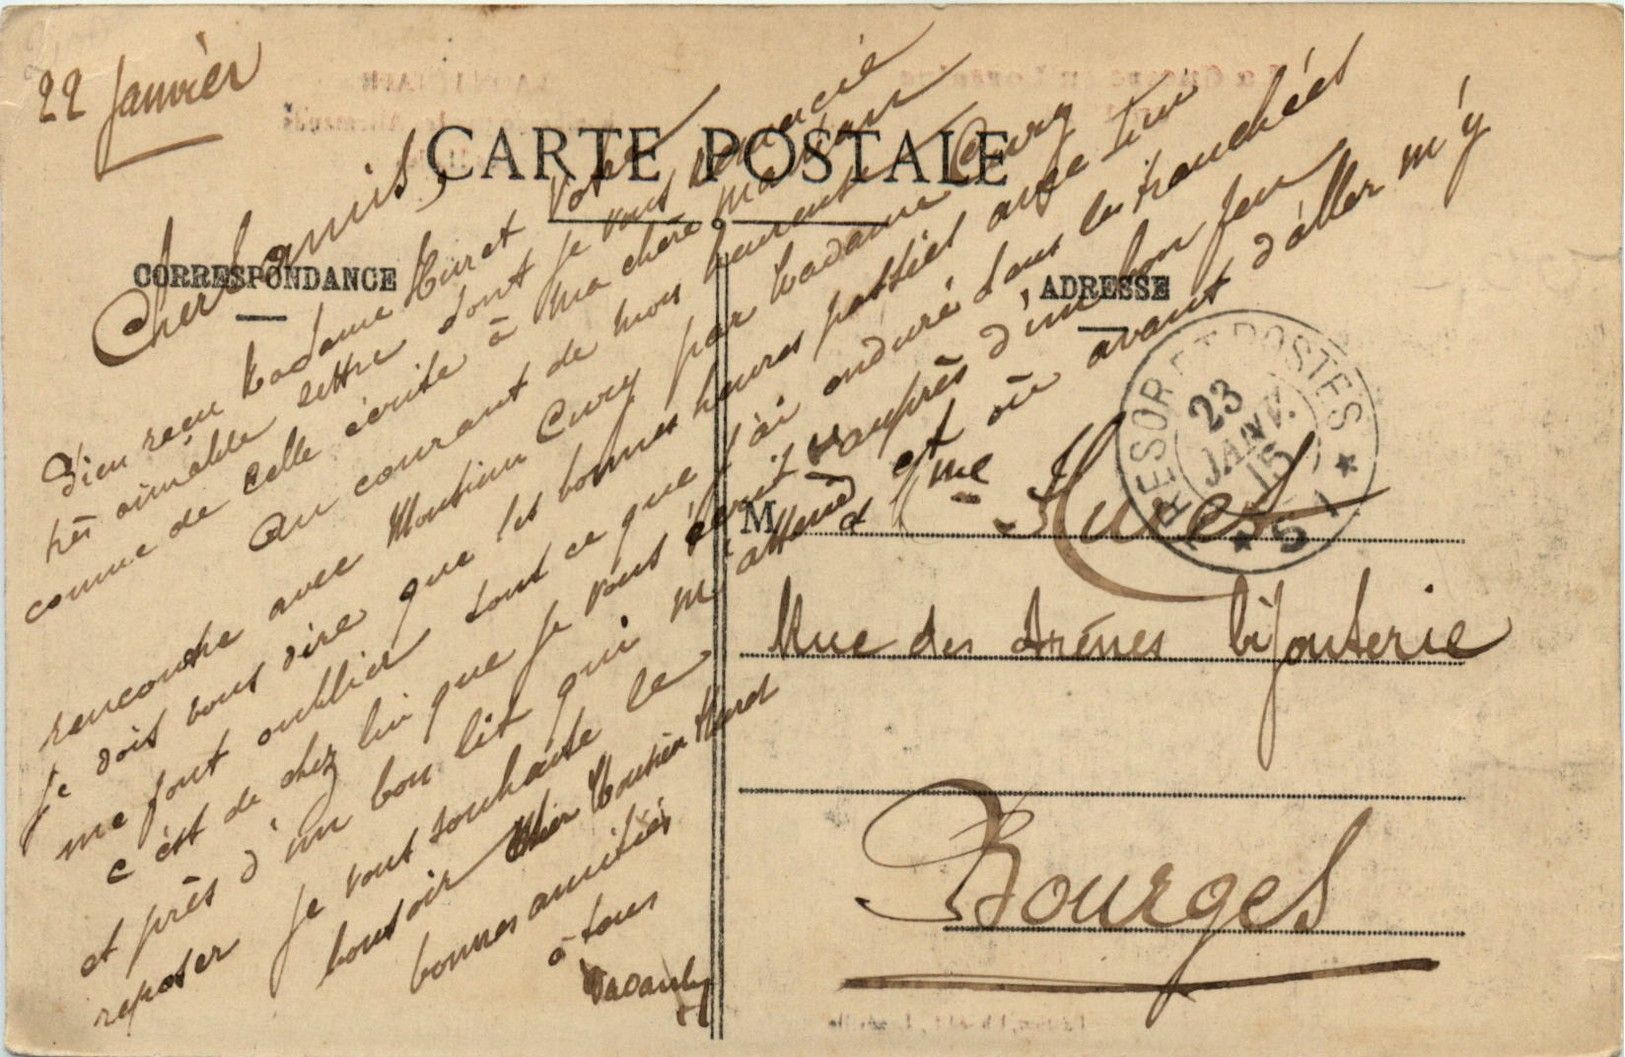 22 Janvier
CARTE POSTALE
CORRESPONDANCE
ADRESSE
Chers amis,
J'ai reçu Madame Huret votre
très aimable lettre dont je vous remercie
comme de celle écrite à ma chère maman
Au courant de mon heureuse
rencontre avec Monsieur Cury par Madame Cury
je dois vous dire que les bonnes heures passées avec lui
me font oublier tout ce que j'ai enduré dans les tranchées
c'est de chez lui que je vous écrit auprès d'un bon feu
et près d'un bon lit qui m'attend et où avant d'aller m'y
reposer je vous souhaite le
bonsoir cher Monsieur Huret
bonnes amitiés
à tous
TRESOR ET POSTES
23
JANV.
15
* 51 *
M et Mme Huret
Rue des Arènes bijouterie
Bourges